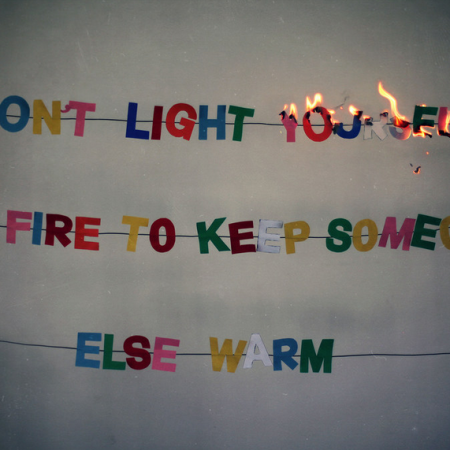 ONT LIGHT YOURSEL
FIRE TO KEEP SOMEO
ELSE WARM